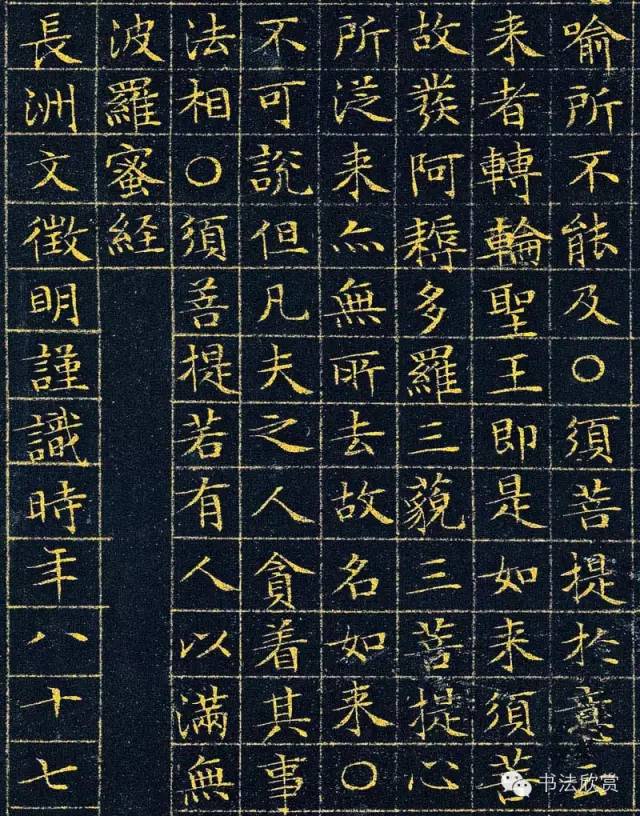 喻所不能及〇須菩提於意云
来者轉輪聖王即是如来須菩
故發阿耨多羅三藐三菩提心
所従来亦無所去故名如来〇
不可說但凡夫之人貪着其事
法相〇須菩提若有人以滿無
波羅蜜経
長洲文徵明謹識時年八十七
书法欣赏